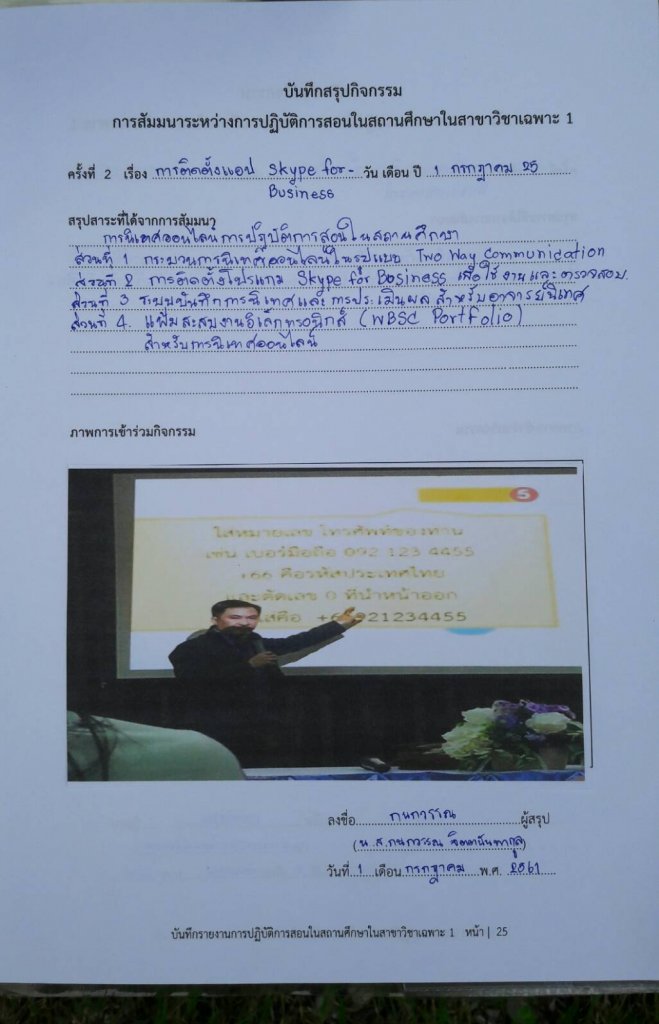 บันทึกสรุปกิจกรรม
การสัมมนาระหว่างการปฏิบัติการสอนในสถานศึกษาในสาขาวิชาเฉพาะ 1
ครั้งที่ 2 เรื่อง การติดตั้งแอป Skype for - วัน เดือน ปี 1 กรกฎาคม 25
Business
สรุปสาระที่ได้จากการสัมมนา
การนิเทศออนไลน์การปฏิบัติการสอนในสถานศึกษา
ส่วนที่ 1 กระบวนการนิเทศออนไลน์ในรูปแบบ Two Way Communication
ส่วนที่ 2 การติดตั้งโปรแกม Skype for Business เพื่อใช้งานและตรวจสอบ.
ส่วนที่ 3 ระบบบันทึกการนิเทศและการประเมินผล สำหรับอาจารย์นิเทศ
ส่วนที่ 4. แฟ้มสะสมงานอิเล็กทรอนิกส์ (WBSC Portfolio)
สำหรับการนิเทศออนไลน์
ภาพการเข้าร่วมกิจกรรม
5
ใส่หมายเลข โทรศัพท์ของท่าน
เช่น เบอร์มือถือ 092 123 4455
+66 คือรหัสประเทศไทย
และตัดเลข 0 ที่นำหน้าออก
ใส่คือ +66921234455
ลงชื่อ กนกวรรณ ผู้สรุป
(น.ส.กนกวรรณ)
วันที่ 1 เดือน กรกฎาคม พ.ศ. 2561
บันทึกรายงานการปฏิบัติการสอนในสถานศึกษาในสาขาวิชาเฉพาะ 1 หน้า | 25